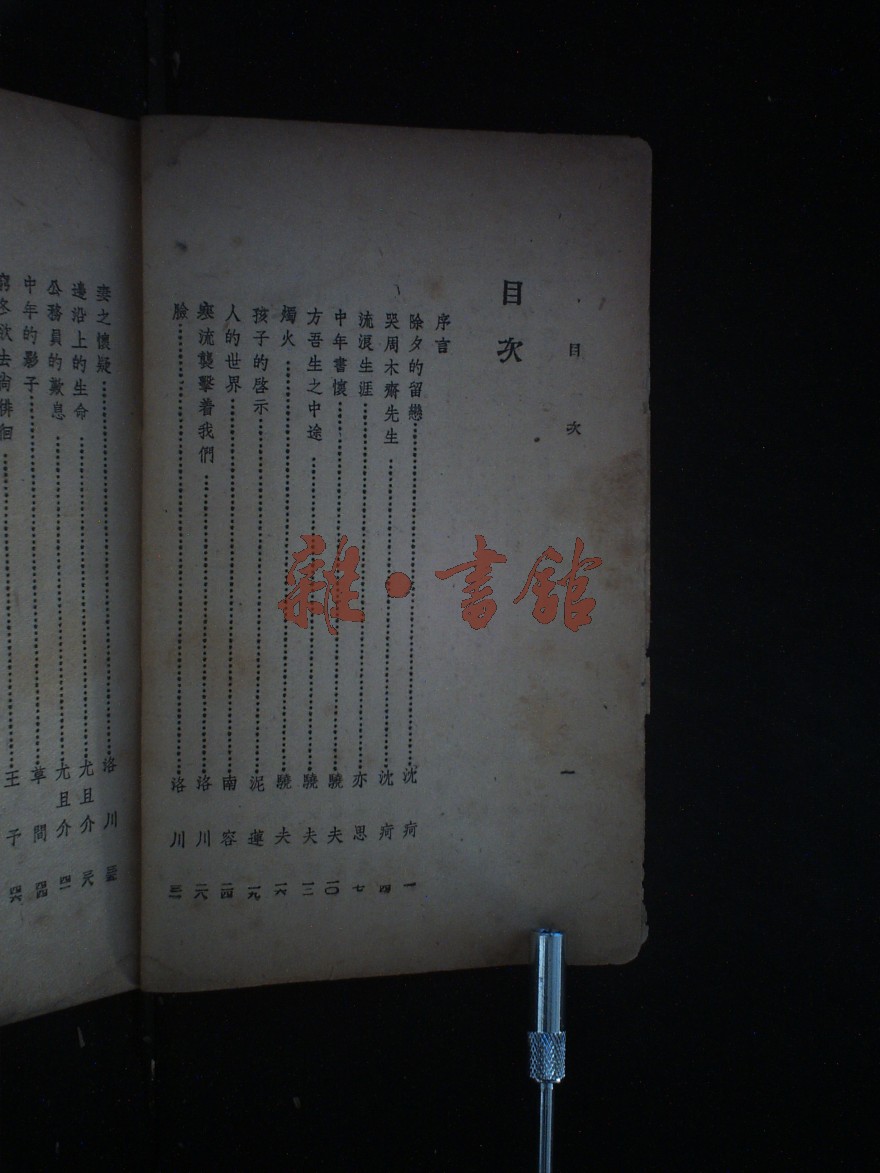 目次
一
目次
序言
除夕的留戀 沈疴 一
哭周木齋先生 沈疴 四
流浪生涯 亦思 七
中年書懷 驍夫 一〇
方吾生之中途 驍夫 一三
燭火 驍夫 一六
孩子的啓示 泥蓮 一九
人的世界 南容 二四
寒流襲擊着我們 洛川 二六
臉 洛川
妻之懷疑 洛川
邊沿上的生命 尤且介
公務員的歎息 尤且介
中年的影子 草間 四四
窮冬欲去尚徘徊 王予 四六
雜·書館